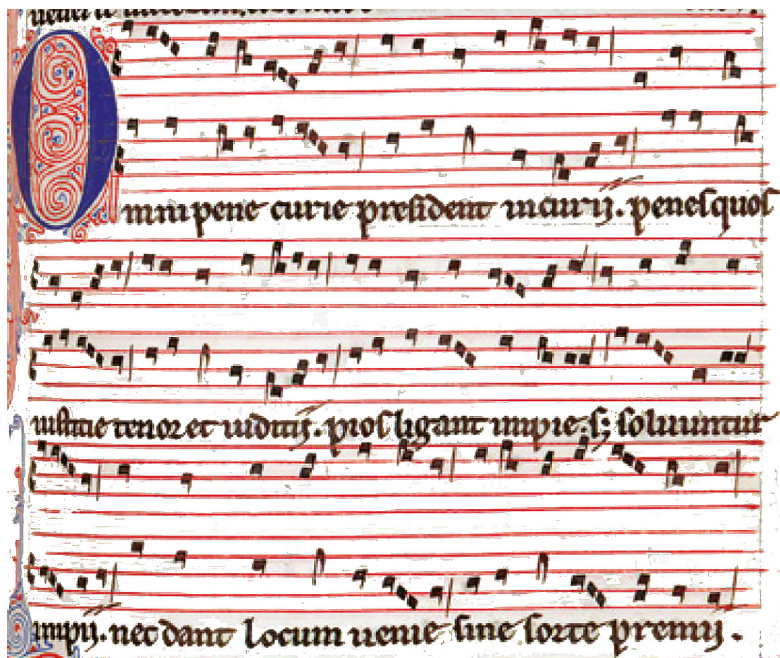 Omni pene curie president incurij. penesquos
iusticie tenor et iudicij. pios ligant impie. s; soluuntur
impij. nec dant locum uenie sine sorte premij.